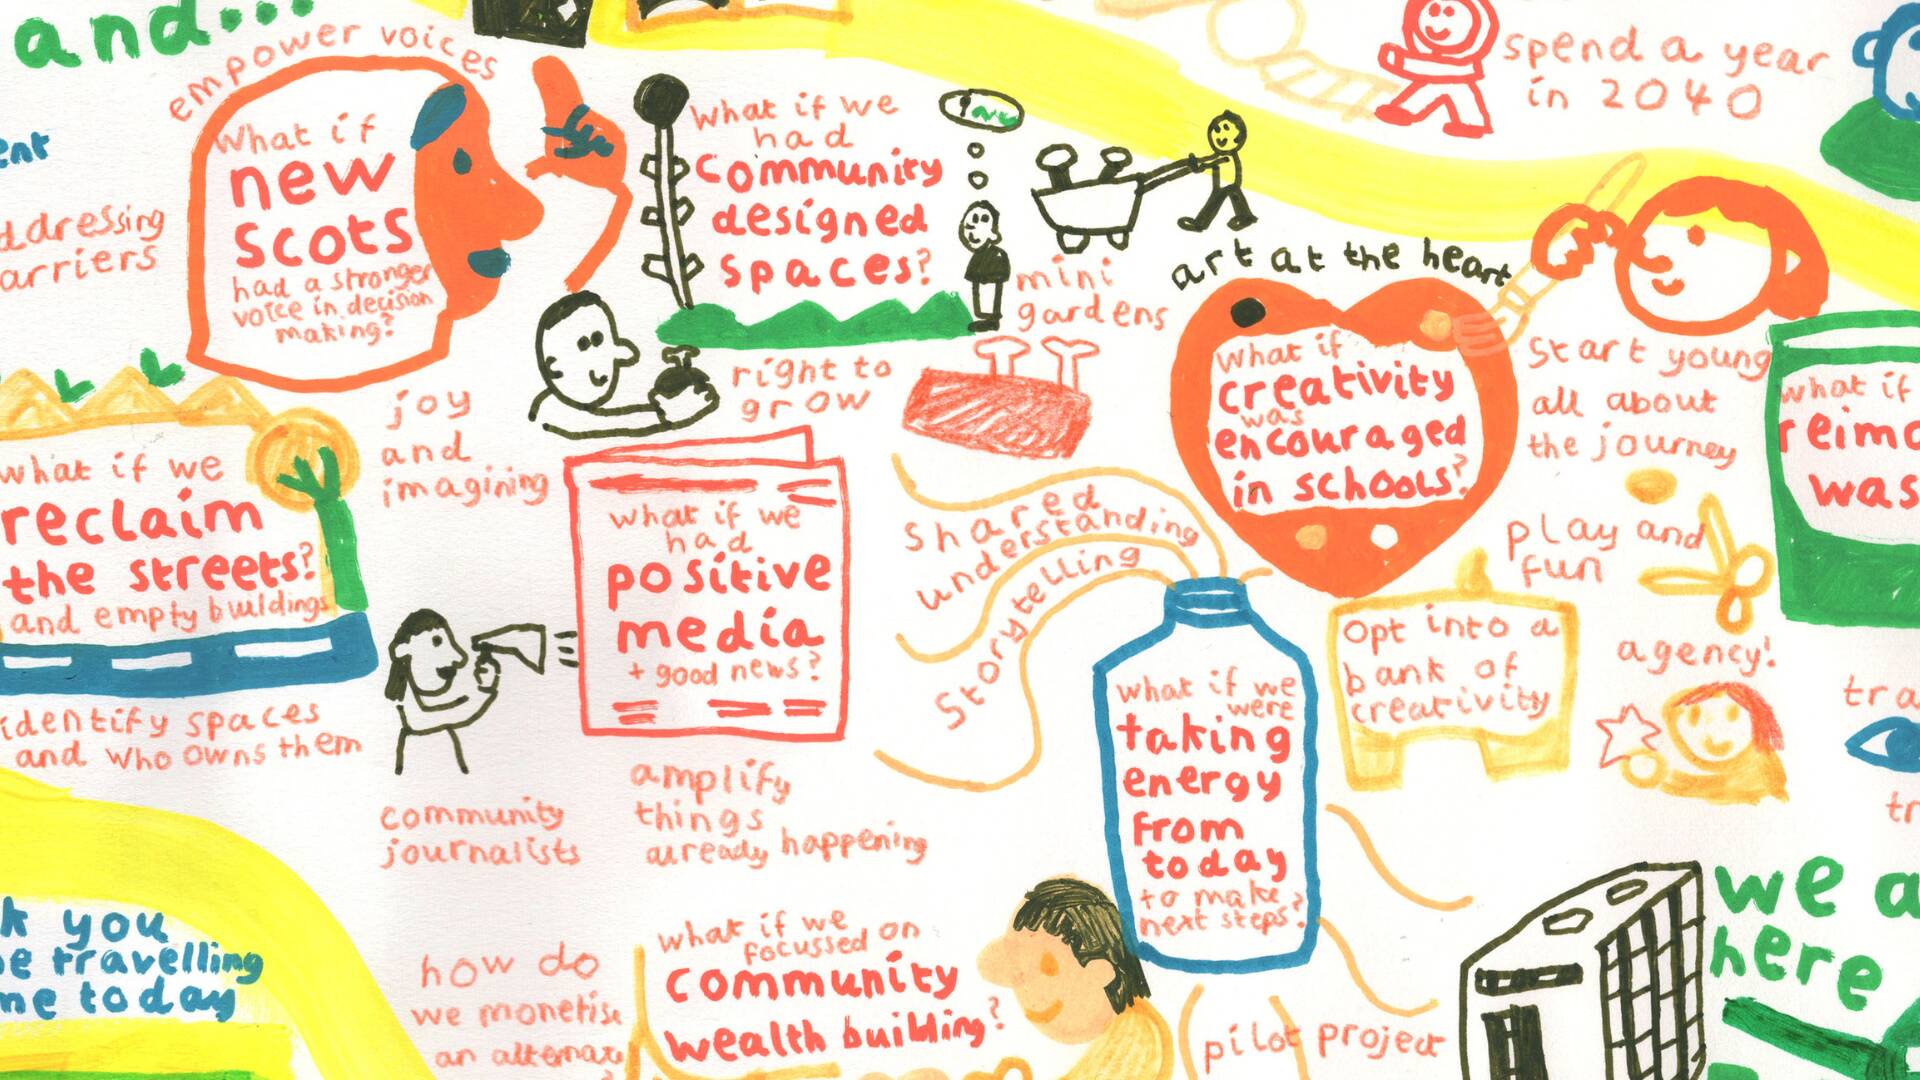 and...
empower voices
What if
new
scots
had a stronger
voice in decision
making?
What if we
had
community
designed
spaces?
mini
gardens
right to
grow
spend a year
in 2040
art at the heart
What if
creativity
was
encouraged
in schools?
Start young
all about
the journey
play and
fun
agency!
what if
was
joy
and
imagining
what if we
reclaim
the streets?
and empty buildings
identify spaces
and who owns them
what if we
had
positive
media
+ good news?
community
journalists
amplify
things
already happening
shared
understanding
storytelling
what if we
were
taking
energy
from
today
to make
next steps?
opt into a
bank of
creativity
pilot project
what if we
focussed on
community
wealth building?
how do
we monetise
an
you
travelling
today
we a
here